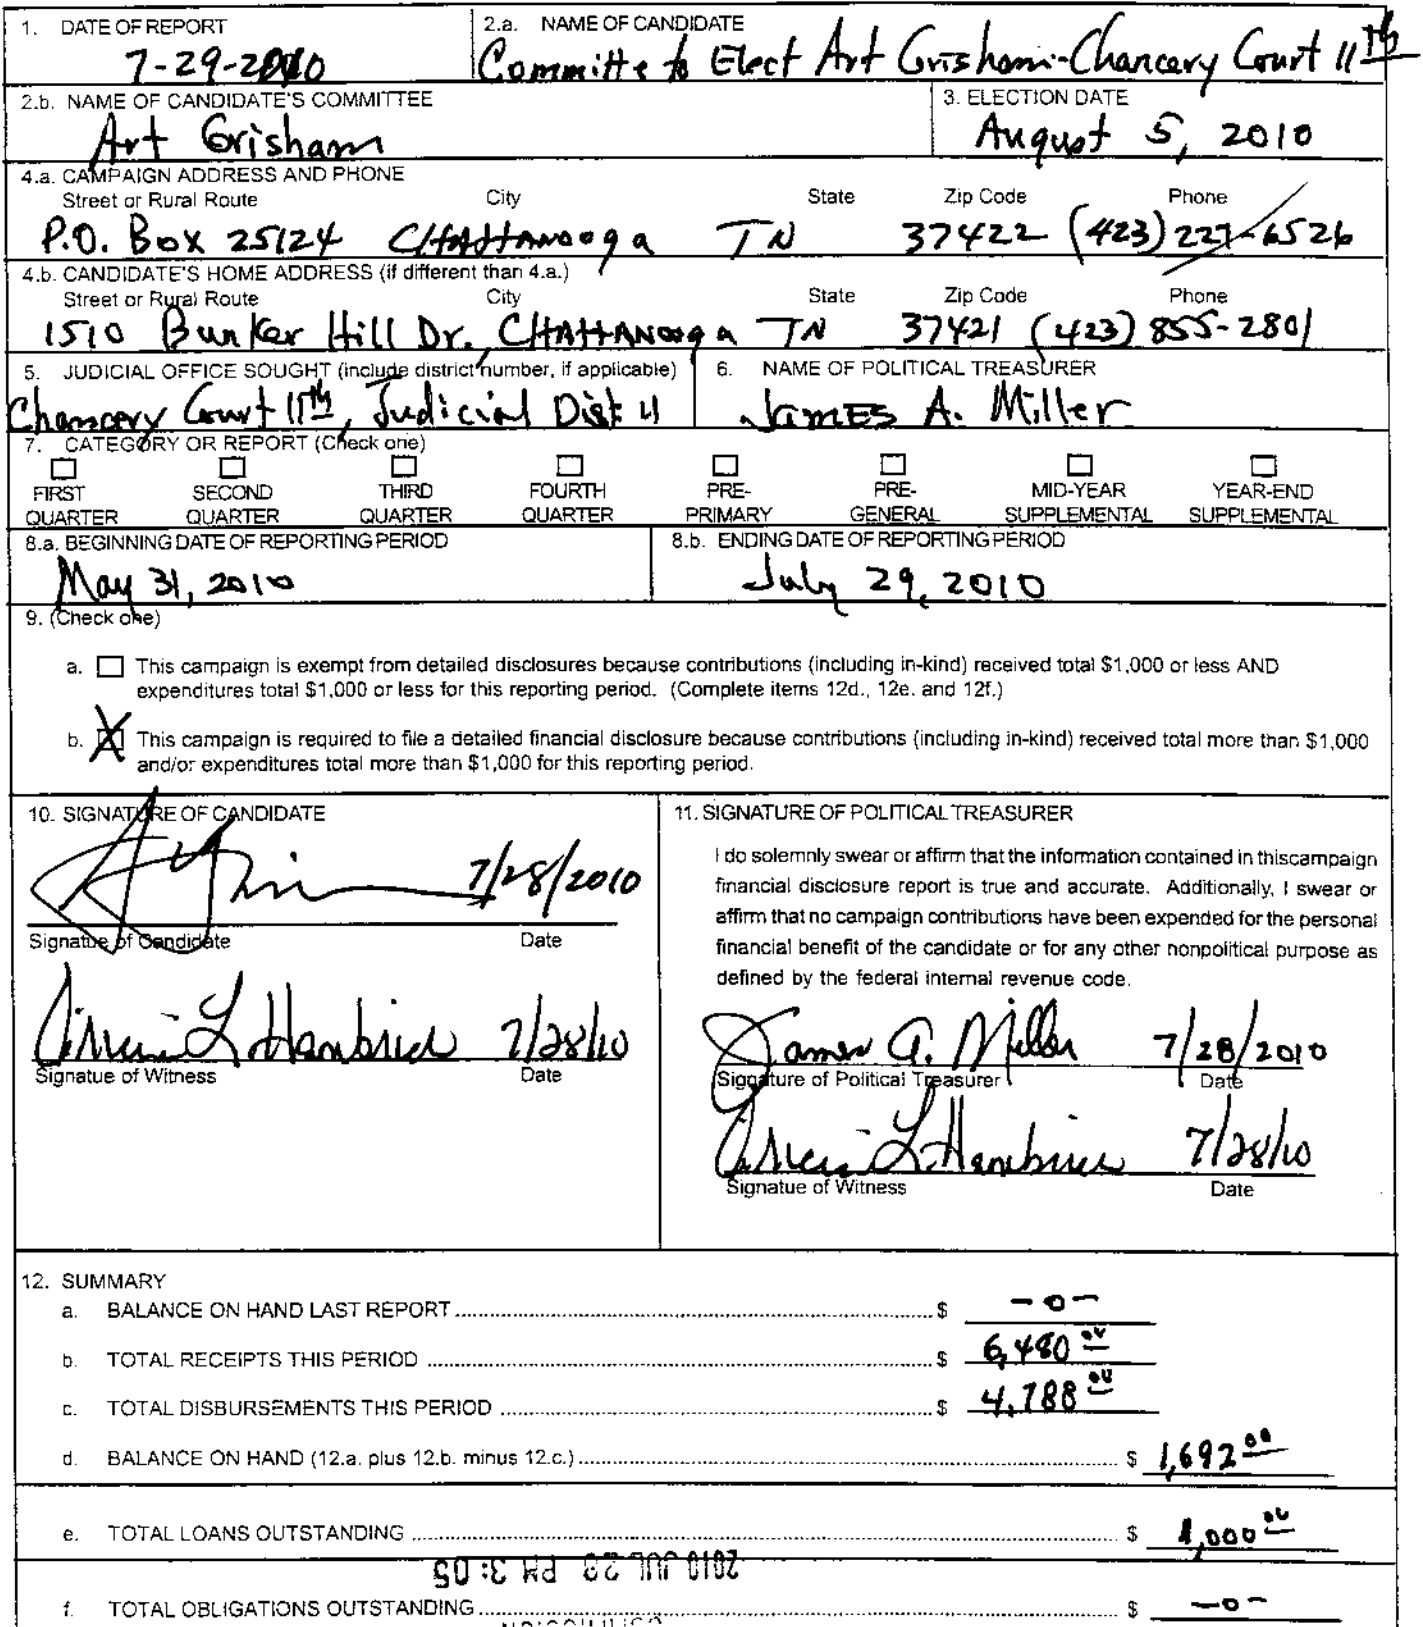 1. DATE OF REPORT
7-29-2010
2.a. NAME OF CANDIDATE
Committe to Elect Art Grisham-Chancery Court 11th
2.b. NAME OF CANDIDATE'S COMMITTEE
Art Grisham
3. ELECTION DATE
August 5, 2010
4.a. CAMPAIGN ADDRESS AND PHONE
Street or Rural Route City State Zip Code Phone
P.O. Box 25124 CHATTANooga TN 37422 (423) 227-6526
4.b. CANDIDATE'S HOME ADDRESS (if different than 4.a.)
Street or Rural Route City State Zip Code Phone
1510 Bunker Hill Dr. CHATTANooga TN 37421 (423) 855-2801
5. JUDICIAL OFFICE SOUGHT (include district number, if applicable)
Chancery Court 11th, Judicial Dist 11
6. NAME OF POLITICAL TREASURER
JAMES A. Miller
7. CATEGORY OR REPORT (Check one)
FIRST QUARTER
SECOND QUARTER
THIRD QUARTER
FOURTH QUARTER
PRE-PRIMARY
PRE-GENERAL
MID-YEAR SUPPLEMENTAL
YEAR-END SUPPLEMENTAL
8.a. BEGINNING DATE OF REPORTING PERIOD
May 31, 2010
8.b. ENDING DATE OF REPORTING PERIOD
July 29, 2010
9. (Check one)
a. This campaign is exempt from detailed disclosures because contributions (including in-kind) received total $1,000 or less AND
expenditures total $1,000 or less for this reporting period. (Complete items 12d., 12e. and 12f.)
b. X This campaign is required to file a detailed financial disclosure because contributions (including in-kind) received total more than $1,000
and/or expenditures total more than $1,000 for this reporting period.
10. SIGNATURE OF CANDIDATE
7/28/2010
Signatue of Candidate Date
7/28/10
Signatue of Witness Date
11. SIGNATURE OF POLITICAL TREASURER
I do solemnly swear or affirm that the information contained in thiscampaign
financial disclosure report is true and accurate. Additionally, I swear or
affirm that no campaign contributions have been expended for the personal
financial benefit of the candidate or for any other nonpolitical purpose as
defined by the federal internal revenue code.
James A. Miller 7/28/2010
Signature of Political Treasurer Date
7/28/10
Signatue of Witness Date
12. SUMMARY
a. BALANCE ON HAND LAST REPORT $ -0-
b. TOTAL RECEIPTS THIS PERIOD $ 6,480 00
c. TOTAL DISBURSEMENTS THIS PERIOD $ 4,788 00
d. BALANCE ON HAND (12.a. plus 12.b. minus 12.c.) $ 1,692 00
e. TOTAL LOANS OUTSTANDING $ 1,000 00
2010 JUL 29 PM 3:05
f. TOTAL OBLIGATIONS OUTSTANDING $ -0-